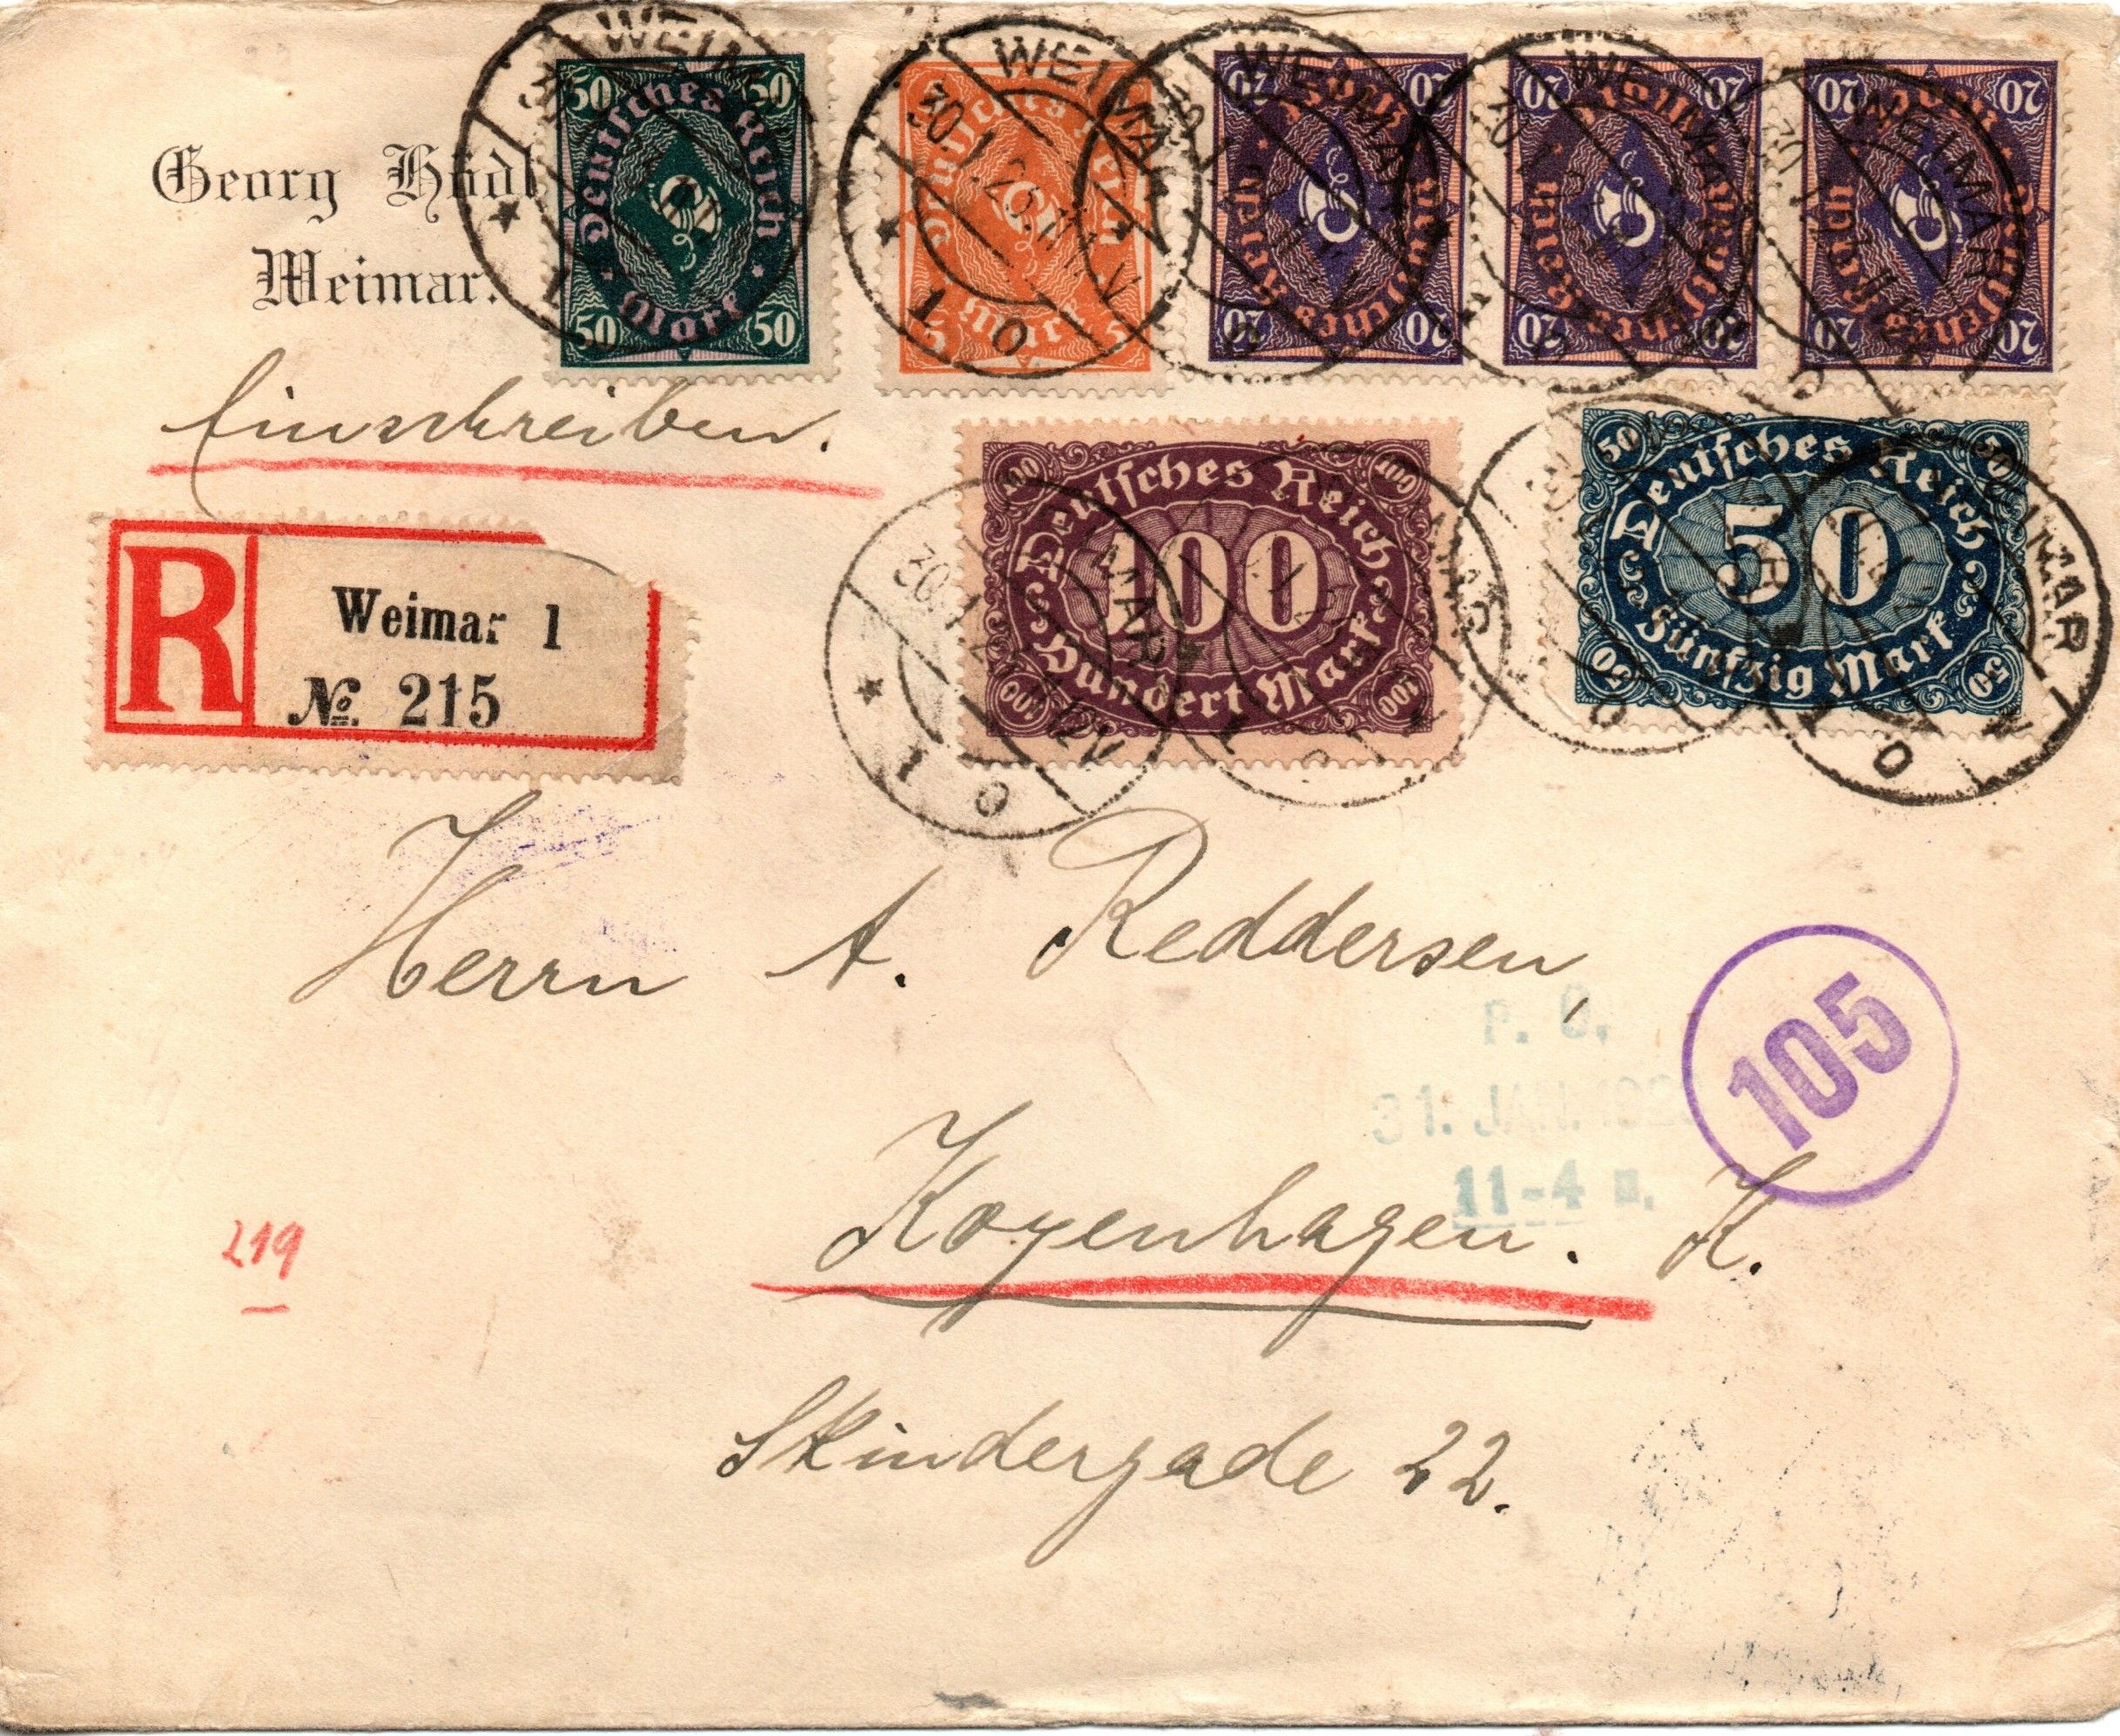 Georg
Weimar.
50 50
Deutsches Reich
Mark
50 50
Deutsches Reich
Mark
5 5
20 20
Deutsches Reich
Mark
20 20
20 20
Deutsches Reich
Mark
20 20
20 20
Deutsches Reich
Mark
20 20
WEIMAR
30.1.23.11-12V
1 o
Einschreiben.
100 100
Deutsches Reich
100
Hundert Mark
100 100
50 50
Deutsches Reich
50
Fünfzig Mark
50 50
R
Weimar 1
№ 215
Herrn A. Reddersen,
P. O.
31. JAN. 192
11-4
105
Kopenhagen. K.
219
Skindergade 22.